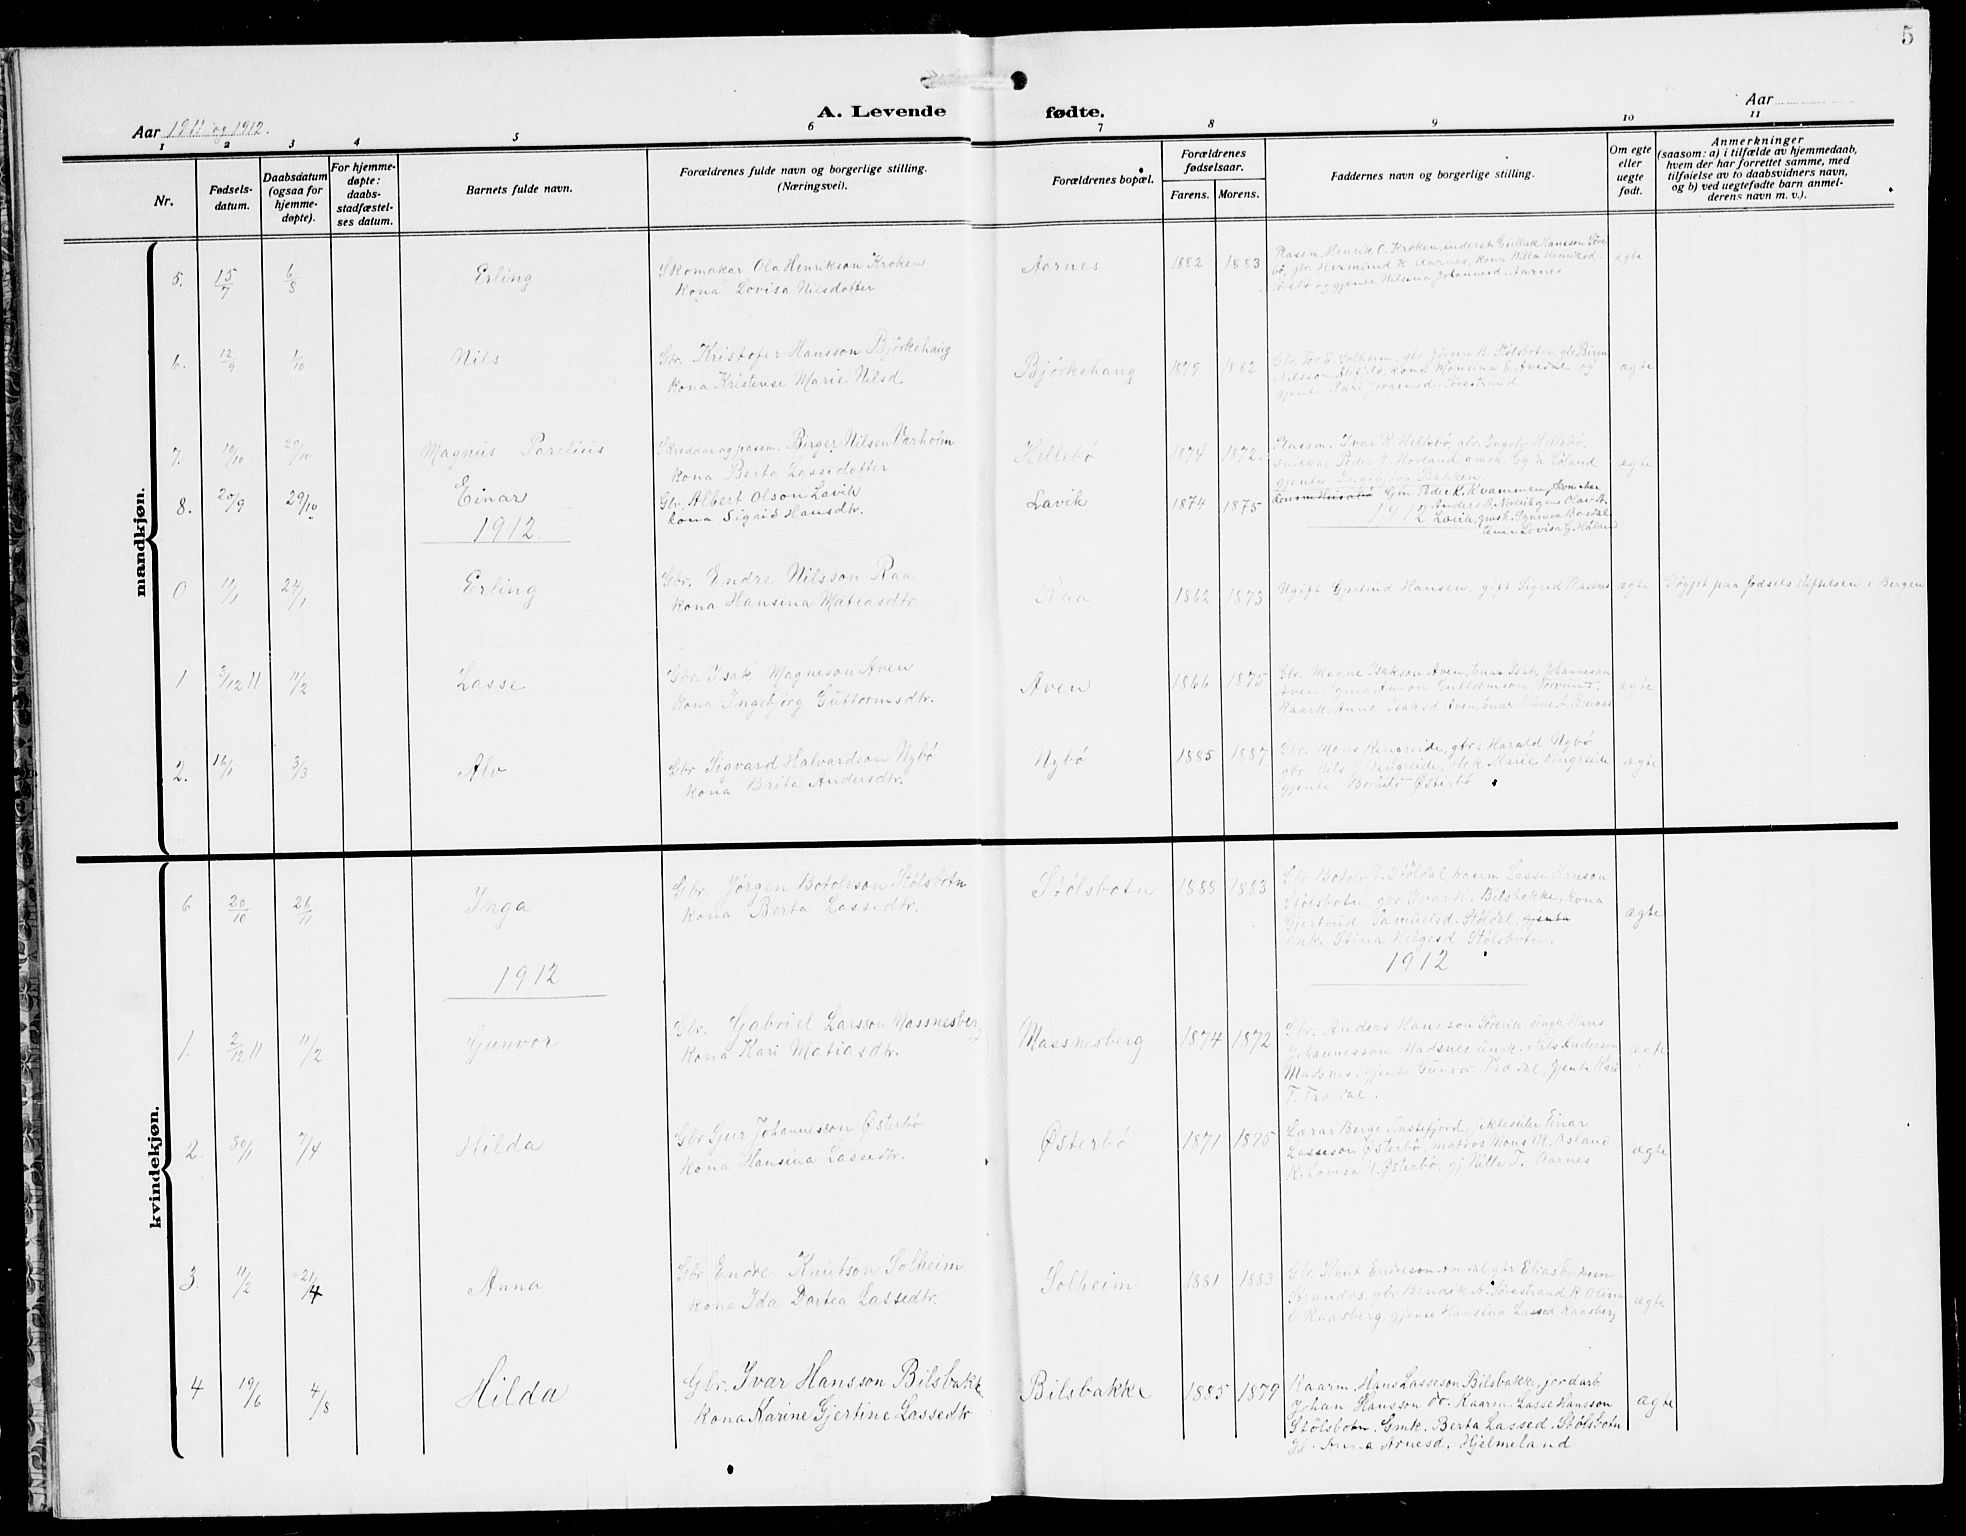 5
A. Levende fødte.
Aar 1911 og 1912.
Aar
1 2 3 4 5 6 7 8 9 10 11
Nr.
Fødsels-
datum.
Daabsdatum
(ogsaa for
hjemme-
døpte).
For hjemme-
døpte:
daabs
stadfæstel-
ses datum.
Barnets fulde navn.
Forældrenes fulde navn og borgerlige stilling.
(Næringsvei).
Forældrenes bopæl.
Forældrenes
fødselsaar.
Farens. Morens.
Faddernes navn og borgerlige stilling.
Om egte
eller
uegte
født.
Anmerkninger
(saasom: a) i tilfælde av hjemmedaab,
hvem der har forrettet samme, med
tilføielse av to daabsvidners navn,
og b) ved uegtefødte barn anmel-
derens navn m. v.).
mandkjøn.
5. 15/7 6/8 Erling
Skomakar Ola Henrikson Kroken
kona Lovisa Nilsdotter
Aarnes 1882 1883
Plassm. Henrik O. Kroken, inderst Gullak Hansson Søre
bø, gbr Hermund K. Aarnes, kona Nilla Henriksd.
Sørebø og gjente Nilsina Johannesd. Aarnes
egte
6. 12/9 1/10 Nils
Gbr. Kristofer Hansson Bjørkehaug
kona Kristense Marie Nilsd
Bjørkehaug 1879 1882
Gbr Tor E. Solheim, gbr. Jørgen B. Stølsbotn, gbr Birger
Nilsson kona Monsina E. Avedal og
gjente Kari Jørgensd. Sørestrand
ægte
7. 10/10 29/10 Magnus Parelius
Skreddar og pasm. Birger Nilsen Varholm
kona Berta Lassedotter
Hellebø 1874 1872.
Plassm. Ivar R. Hellebø, gbr. Ingolv Hellebø,
Snikkar Peder J. Hovland, gmsk. Løland
gjente Ingebjørg Bakken.
ægte
8. 20/9 29/10 Einar
Gbr. Albert Olson Lavik
kona Sigrid Hansdtr.
Lavik 1874 1875
Gm Peder K. Kvammen,
Anders A. Nordik gm Olav A.
Lavik, gmsk. Synneva Bosdal
tenar Lovisa G. Haland
1912.
1912
0 11/1 24/1 Erling
Gbr. Endre Nilsson Raa
kona Hansina Matiasdtr.
Raa 1862 1873
Ugift Gjertrud Hansen, gift Sigrid Rasmus
egte
Døypt paa fødselsstiftelsen i Bergen
1 3/12 11 11/2 Lasse
Gbr. Isak Magneson Aven
kona Ingebjørg Guttormsdtr.
Aven 1866 1875
Gbr. Magne Isakson Aven, tenar Isak Johannesson
Aven, Anton Guttormson Torvund,
Kaark. Anna Isaksd. Aven, tenar Breiaas
ægte
2. 16/1 3/3 Alv
Gbr Sigvard Halvardson Nybø
kona Brita Andersdtr.
Nybø 1885 1887
Gbr. Mons Rengreide, gbr. Harald Nybø
gbr Nils J. Ringreide, gbrk Marie Ringreide
gjente Østerbø
ægte
kvindekjøn.
6 20/10 26/11 Inga
Gbr. Jørgen Botolvson Stølsbotn
kona Berta Lassedtr.
Stølsbotn 1888 1883
Gbr Botolv J. Støldal, kaarm Lasse Hanson
Stølsbotn, gbr Ivar H. Bilsbakke, kona
Gjertrud Samuelsd. Støldal, gjenta
enke Stina Helgesd. Stølsbotn.
ægte
1912
1912
1. 2/12 11 11/2 Gunvor
Gbr. Gabriel Larsson Massnesberg
kona Kari Matiasdtr.
Massnesberg 1874 1872
Gbr. Anders Hansson Sørevik, ungk. Hans
Johannesson Madsnes ungk. Nils Anderson
Madsnes. gjente Gunvor Tradal, gjente Kari
T. Tradal.
ægte
2. 30/1 7/4 Hilda
Gbr Sjur Johannesson Østerbø
kona Hansina Lassedtr.
Østerbø 1871 1875
Lærar Berge Instefjord, Einar
Lasseson Østerbø, matros Mons M. Osland
K. Lovisa N. Østerbø, gj Nilla T. Aarnes
ægte
3. 11/2 21/4 Anna
Gbr Endre Knutson Solheim
kona Ida Dortea Lassedtr.
Solheim 1881 1883
Gbr. Knut Endreson Avedal gbr Elias Endreson
Strandos, gbr Bendik A. Sørestrand K. Olina
O. Raasberg, gjente Hansina Lassed Raasberg
ægte
4 19/6 4/8 Hilda
Gbr. Ivar Hansson Bilsbakke
kona Karine Gjertine Lassedtr
Bilsbakke 1885 1879
Kaarm. Hans Lasseson Bilsbakke, jordarb.
Johan Hansson do. Kaarm. Lasse Hansson
Stølsbotn. Gmk. Berta Lassed. Stølsbotn
gj. Anna Arnesd. Hjelmeland
ægte